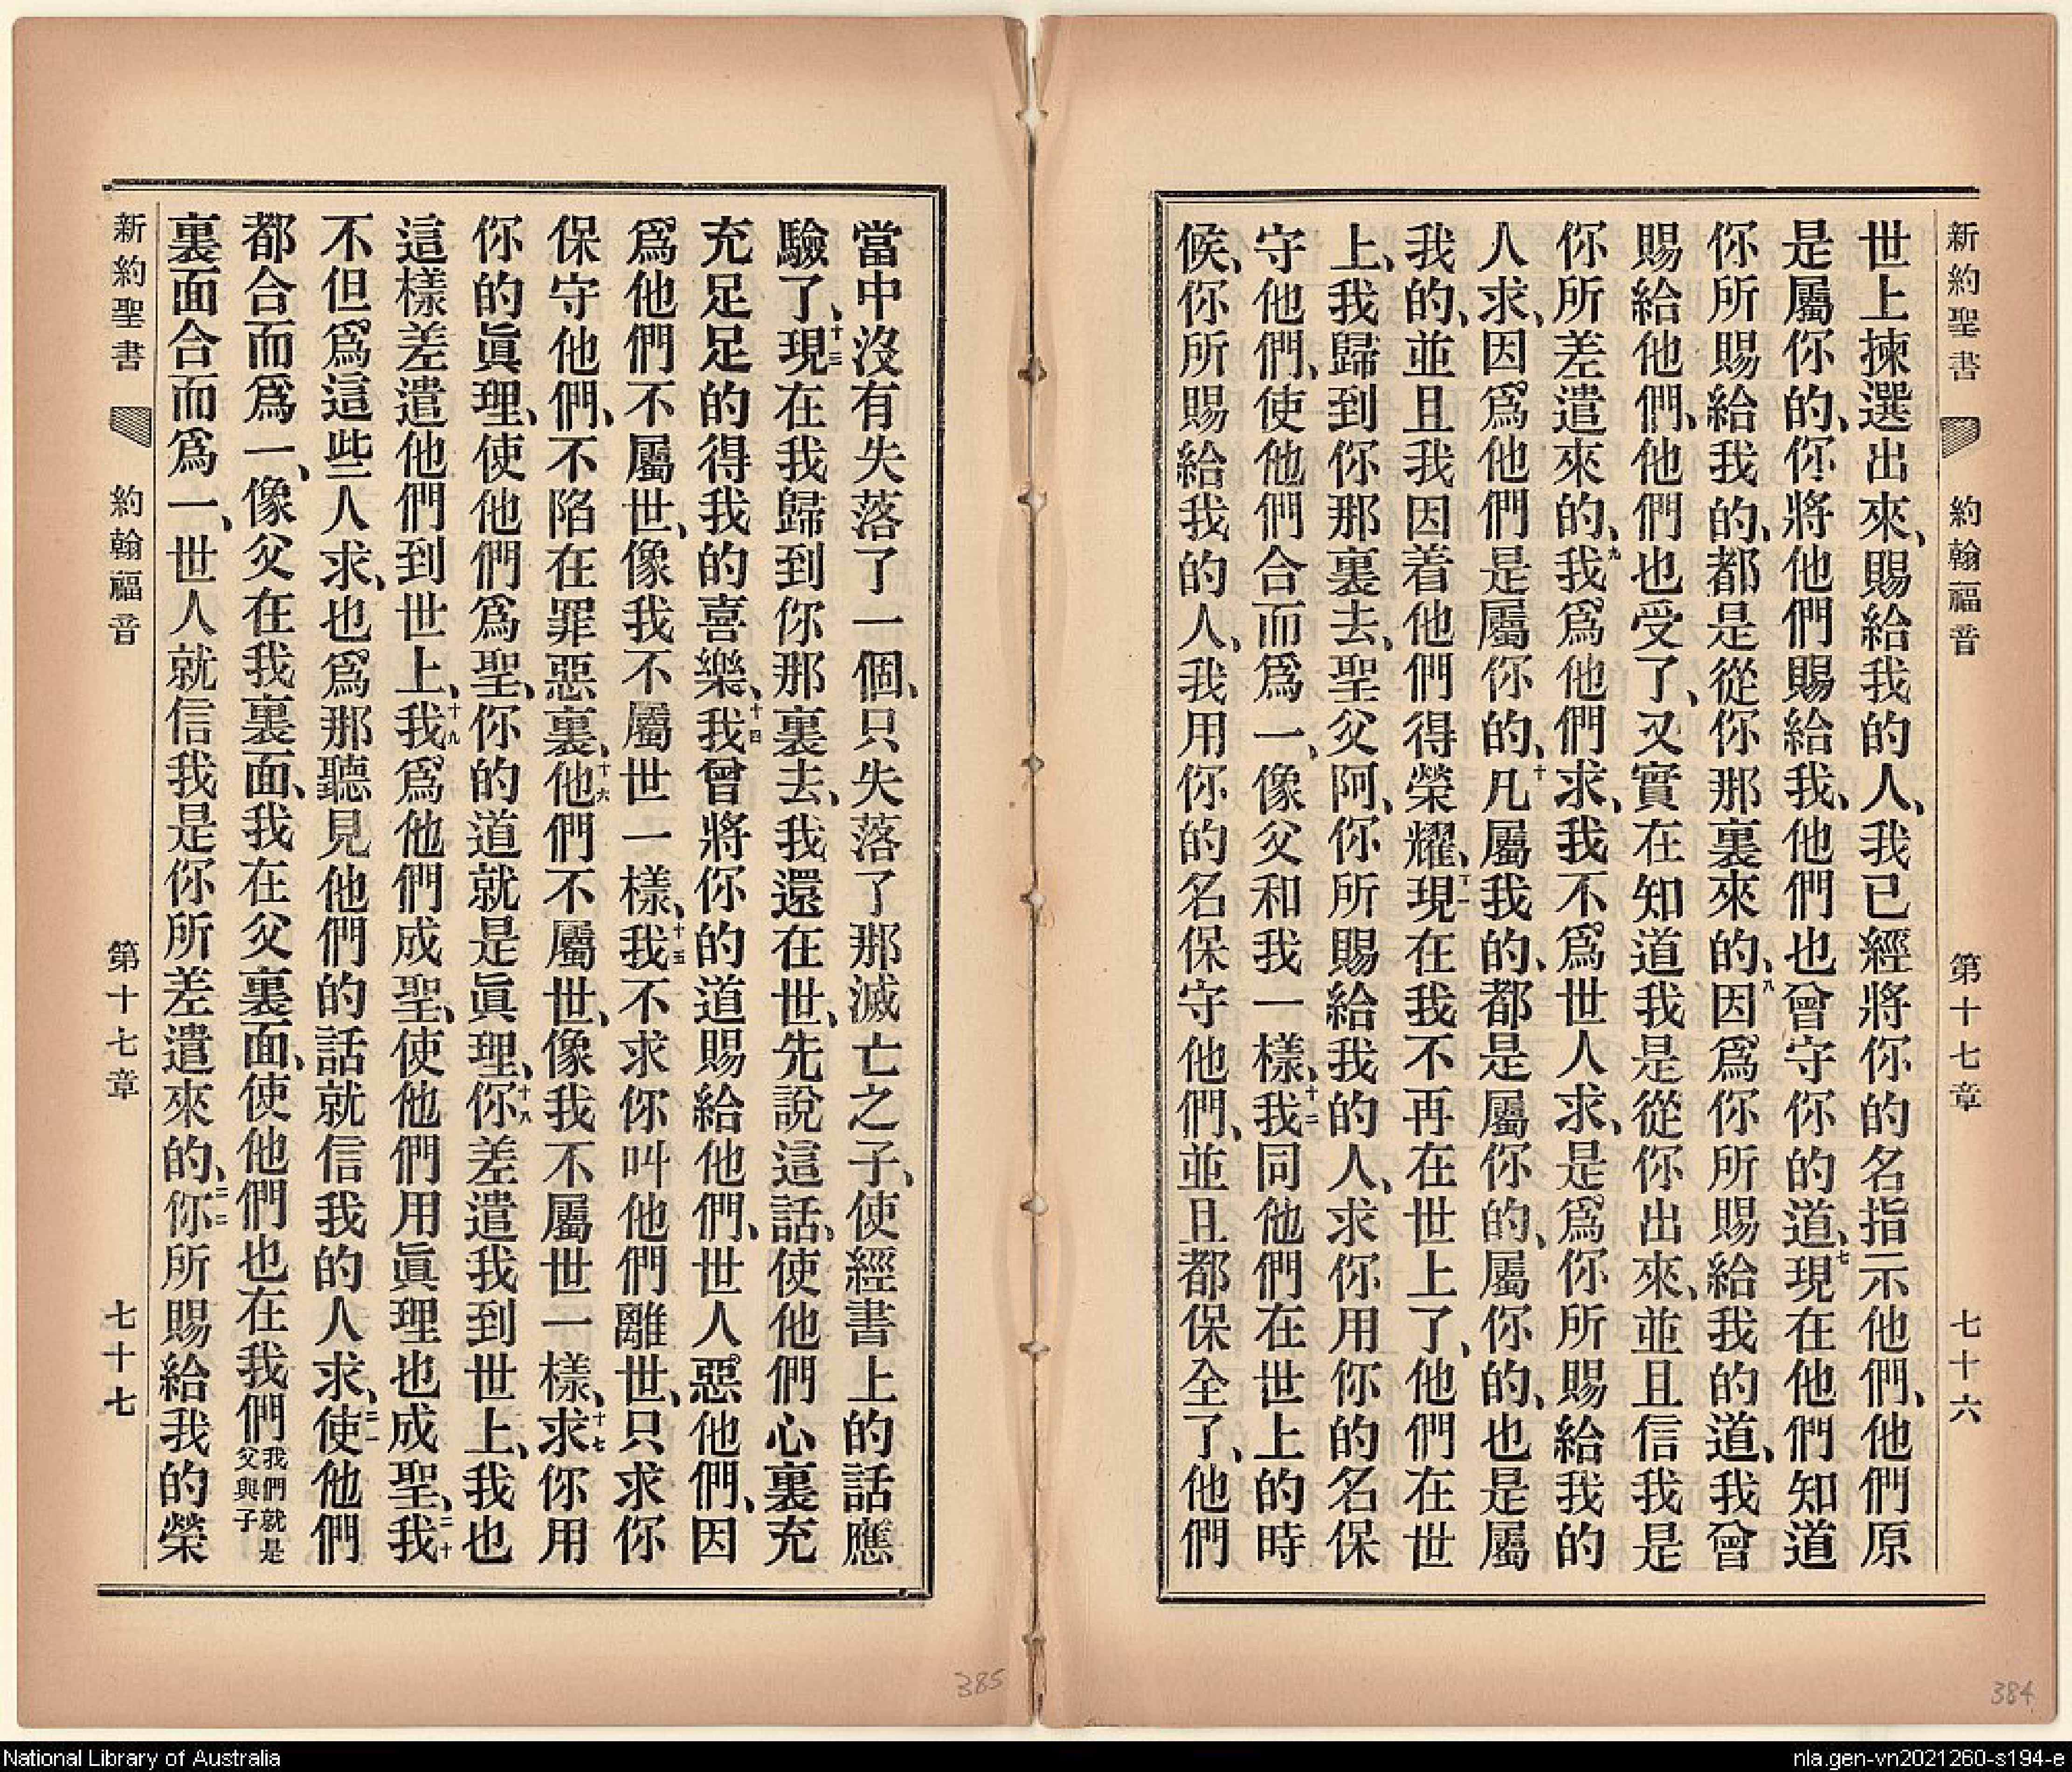 新約聖書 約翰福音 第十七章 七十六
世上揀選出來、賜給我的人、我已經將你的名指示他們、他們原
是屬你的、你將他們賜給我、他們也曾守你的道、七現在他們知道
你所賜給我的、都是從你那裏來的、八因爲你所賜給我的道、我曾
賜給他們、他們也受了、又實在知道我是從你出來、並且信我是
你所差遣來的、九我爲他們求、我不爲世人求、是爲你所賜給我的
人求、因爲他們是屬你的、十凡屬我的、都是屬你的、屬你的、也是屬
我的、並且我因着他們得榮耀、十一現在我不再在世上了、他們在世
上、我歸到你那裏去、聖父阿、你所賜給我的人、求你用你的名保
守他們、使他們合而爲一、像父和我一樣、十二我同他們在世上的時
候、你所賜給我的人、我用你的名保守他們、並且都保全了、他們
當中沒有失落了一個、只失落了那滅亡之子、使經書上的話應
驗了、十三現在我歸到你那裏去、我還在世、先說這話、使他們心裏充
充足足的得我的喜樂、十四我曾將你的道賜給他們、世人惡他們、因
爲他們不屬世、像我不屬世一樣、十五我不求你叫他們離世、只求你
保守他們、不陷在罪惡裏、十六他們不屬世、像我不屬世一樣、十七求你用
你的眞理、使他們爲聖、你的道就是眞理、十八你差遣我到世上、我也
這樣差遣他們到世上、十九我爲他們成聖、使他們用眞理也成聖、二十我
不但爲這些人求、也爲那聽見他們的話就信我的人求、二一使他們
都合而爲一、像父在我裏面、我在父裏面、使他們也在我們我們就是父與子
裏面合而爲一、世人就信我是你所差遣來的、二二你所賜給我的榮
新約聖書 約翰福音 第十七章 七十七
385
384
National Library of Australia
nla.gen-vn2021260-s194-e